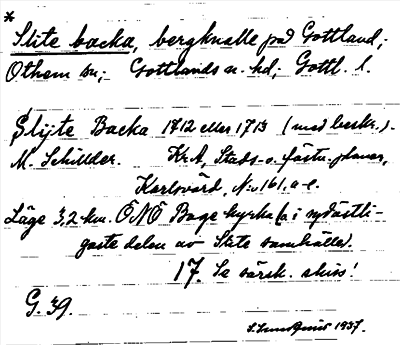 *
Slite backa, bergknalle på Gottland;
Othem sn; Gottlands n. hd; Gottl. l.
Slijte Backa 1712 eller 1713 (med beskr.).
M. Schillder. Kr.A, Stads- o. fästn.planer,
Karlsvärd, N:o 161, a-e.
Läge 3,2 km. ÖNÖ Boge kyrka (a i sydöstli-
gaste delen av Slite samhälle).
17. Se särsk. skiss!
G. 39.
1937.